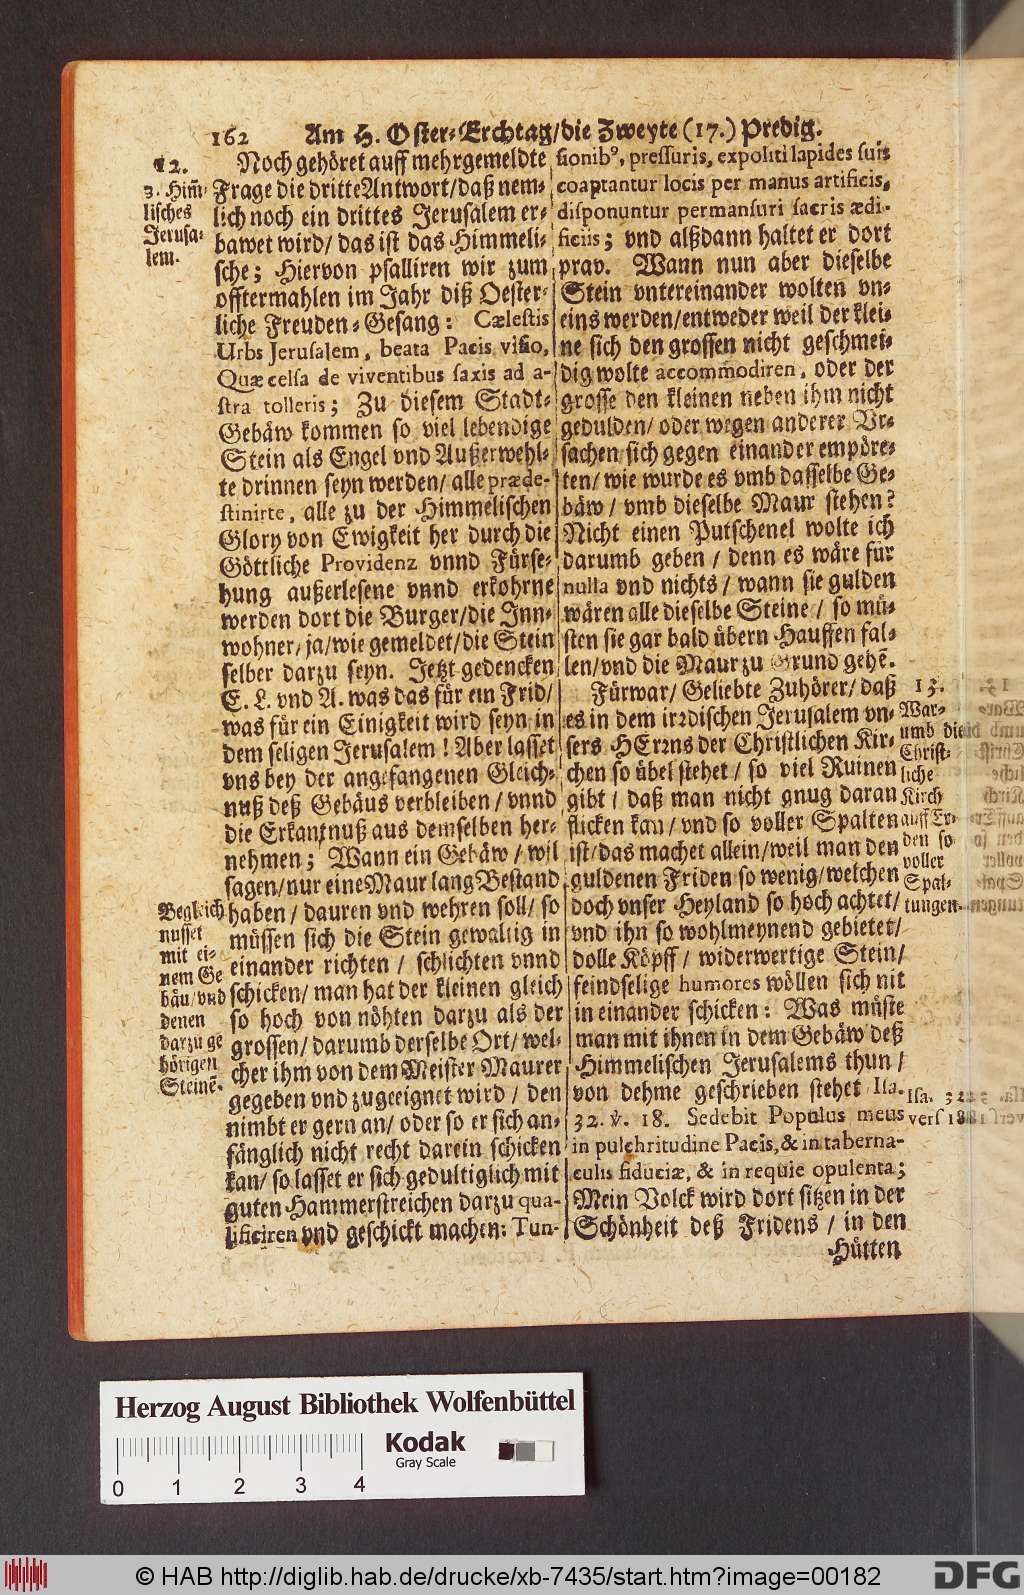 162 Am H. Oster-Erchtag/die Zweyte (17.) Predig.
12.
3. Him̃-
lisches
Jerusa-
lem.
Noch gehöret auff mehrgemeldte
Frage die dritte Antwort/daß nem-
lich noch ein drittes Jerusalem er-
bawet wird/ das ist das Himmeli-
sche; Hiervon psalliren wir zum
offtermahlen im Jahr diß Oester-
liche Freuden-Gesang: Cælestis
Urbs Jerusalem, beata Pacis visio,
Quæ celsa de viventibus saxis ad a-
stra tolleris; Zu diesem Stadt-
Gebäw kommen so viel lebendige
Stein als Engel vnd Außerwehl-
te drinnen seyn werden/ alle præde-
stinirte, alle zu der Himmelischen
Glory von Ewigkeit her durch die
Göttliche Providenz vnnd Fürse-
hung außerlesene vnnd erkohrne
werden dort die Burger/die Inn-
wohner, ja/wie gemeldet/die Stein
selber darzu seyn. Jetzt gedencken
E. L. vnd A. was das für ein Frid/
was für ein Einigkeit wird seyn in
dem seligen Jerusalem! Aber lasset
vns bey der angefangenen Gleich-
nuß deß Gebäus verbleiben/ vnnd
die Erkantnuß aus demselben her-
nehmen; Wann ein Gebäw/ wil
sagen/nur eine Maur lang Bestand
haben/ dauren vnd wehren soll/ so
müssen sich die Stein gewaltig in
einander richten/ schlichten vnnd
schicken/ man hat der kleinen gleich
so hoch von nöhten darzu als der
grossen/ darumb derselbe Ort/ wel-
cher ihm von dem Meister Maurer
gegeben vnd zugeeignet wird/ den
nimbt er gern an/ oder so er sich an-
fänglich nicht recht darein schicken
kan/ so lasset er sich gedultiglich mit
guten Hammerstreichen darzu qua-
lificiren vnd geschickt machen: Tun-
Begleich
nusset
mit ei-
nem Ge
bäu/vnd
denen
darzu ge
hörigen
Steinẽ.
sionibꝰ, pressuris, expoliti lapides suis
coaptantur locis per manus artificis,
disponuntur permansuri sacris ædi-
ficiis; vnd alßdann haltet er dort
prav. Wann nun aber dieselbe
Stein vntereinander wolten vn-
eins werden/entweder weil der klei-
ne sich den grossen nicht geschmei-
dig wolte accommodiren, oder der
grosse den kleinen neben ihm nicht
gedulden/ oder wegen anderer Vr-
sachen sich gegen einander empöre-
ten/ wie wurde es vmb dasselbe Ge-
bäw/ vmb dieselbe Maur stehen?
Nicht einen Putschenel wolte ich
darumb geben/ denn es wäre für
nulla vnd nichts/ wann sie gulden
wären alle dieselbe Steine/ so mü-
sten sie gar bald übern Hauffen fal-
len/vnd die Maur zu Grund gehẽ.
Fürwar/ Geliebte Zuhörer/ daß
es in dem irꝛdischen Jerusalem vn-
sers HErꝛns der Christlichen Kir-
chen so übel stehet/ so viel Ruinen
gibt/ daß man nicht gnug daran
flicken kan/ vnd so voller Spalten
ist/das machet allein/weil man den
guldenen Friden so wenig/welchen
doch vnser Heyland so hoch achtet/
vnd ihn so wohlmeynend gebietet/
dolle Köpff/ widerwertige Stein/
feindselige humores wöllen sich nit
in einander schicken: Was müste
man mit ihnen in dem Gebäw deß
Himmelischen Jerusalems thun/
von dehme geschrieben stehet Isa.
32. ℣. 18. Sedebit Populus meus
in pulchritudine Pacis, & in taberna-
culis fiduciæ, & in requie opulenta;
Mein Volck wird dort sitzen in der
Schönheit deß Fridens/ in den
Hütten
13.
War-
umb die
Christ-
liche
Kirch
auff Er-
den so
voller
Spal-
tungen.
Isa. 32.
vers 18.
Herzog August Bibliothek Wolfenbüttel
Kodak
Gray Scale
0 1 2 3 4
© HAB http://diglib.hab.de/drucke/xb-7435/start.htm?image=00182
DFG